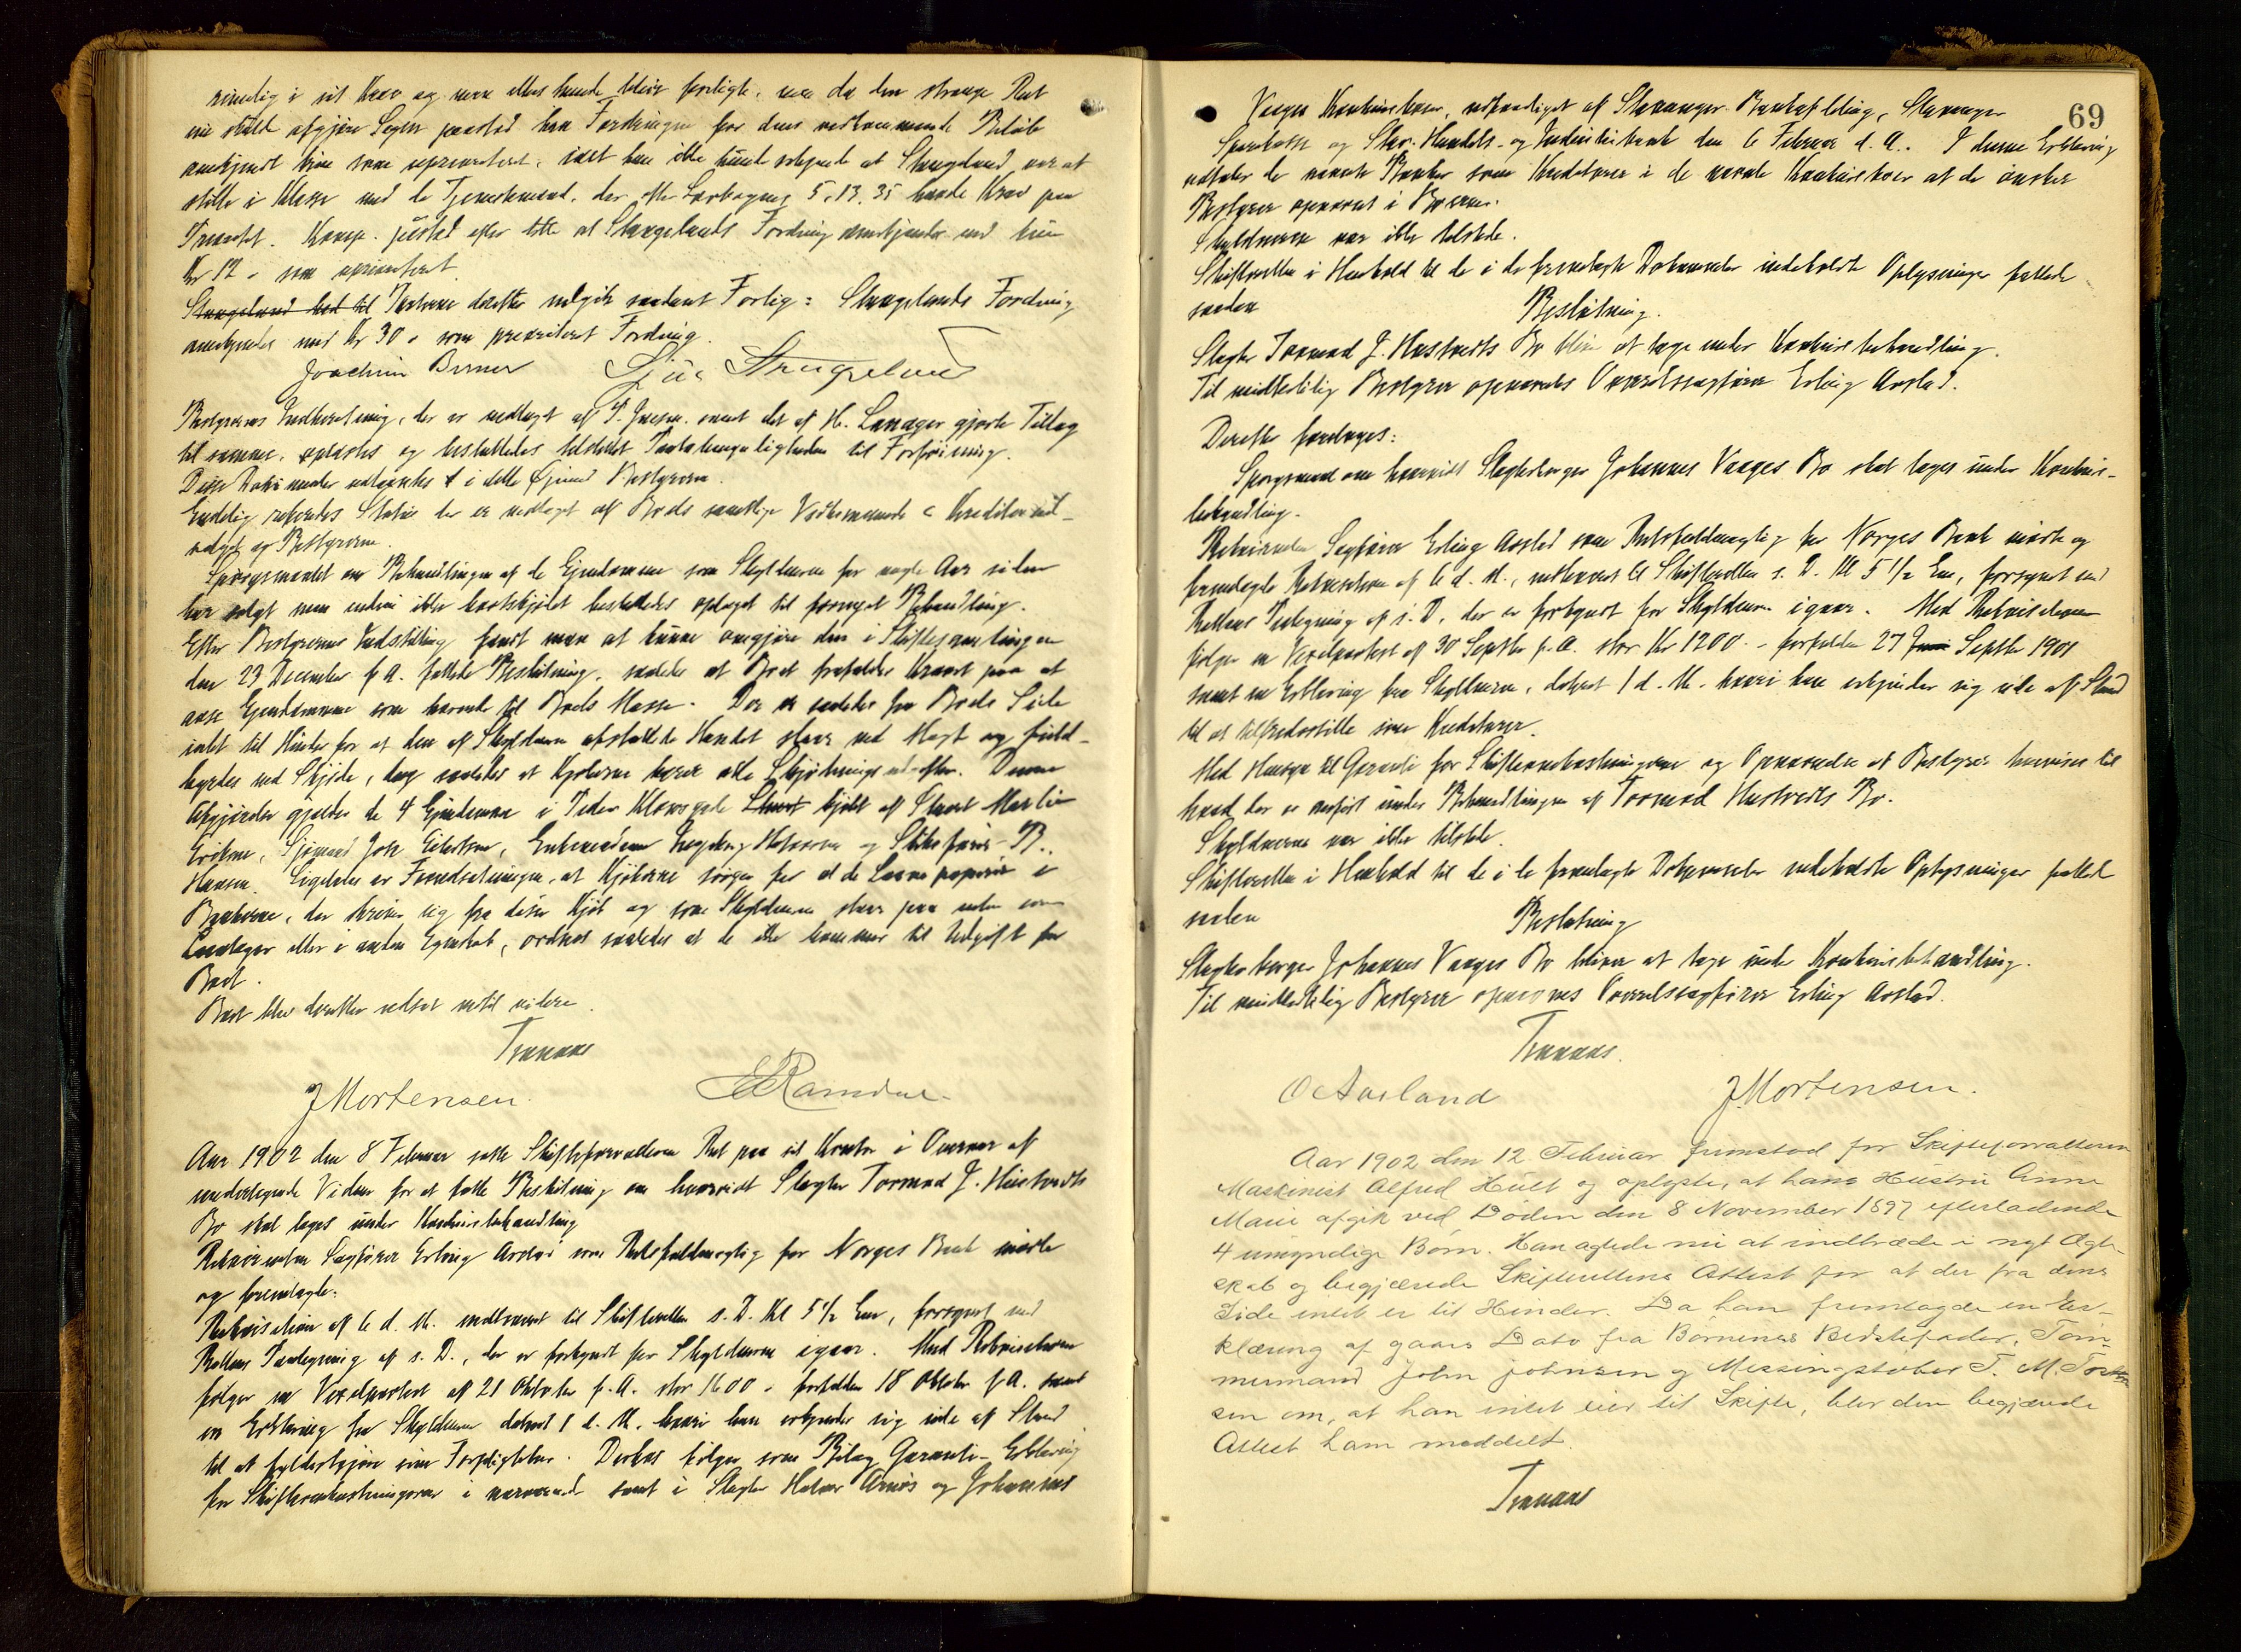 rimelig i sit Krav og men ellers kunde blive forligte, men da den strenge Ret
nu skulde afgjøre Sagen paastod han Fordringen for dens vedkommende Beløb
anerkjendt kun som uprioriteret, idet han ikke kunde erkjende at Skangeland var at
stille i Klasse med de Tjenestemænd, der efter Lovbogens 5.13.35 havde Krav paa
Prioritet. Komp. paastod efter dette at Stangelands Fordring anerkjendes med kun
Kr 12 - som uprioriteret.
Stangeland hod til Parterne derefter indgik saadant Forlig: Stangelands Fordring
anerkjendes med Kr 30 - som prioriteret Fordring.
Joachim Berner Sjur Stangeland
Bestyrernes Indberetning, der er vedtaget af samt det af H. Lanager gjorte Tillæg
til samme, oplæstes og besluttedes tilstillet Paatalemyndigheden til Forføining.
Disse Dokumenter udtoges i dette Øiemed Bestyreren.
Endelig refereredes Status der er vedtaget af Boets samtlige Vedkommende c Kreditorud-
valget og Bestyrerne.
Spørgsmaalet om Behandlingen af de Ejendomme som Skyldneren for nogle Aar siden
har solgt men endnu ikke bortskjødet besluttedes optaget til fornyet Behandling.
Efter Bestyrernes Indstilling fandt man at kunne omgjøre den i Skiftesamlingen
den 23 December f. A. fattede Beslutning, saaledes at Boet frafalder Kravet paa at
anse Ejendommene som hørende til Boets Masse. Der er saaledes fra Boets Side
intet til Hinder for at den af Skyldneren afsluttede Handel staar ved Magt og fuld-
byrdes ved Skjøde, dog saaledes at Kjøberne bærer alle Skjødningsudgifter. Denne
Afgjørelse gjælder de 4 Ejendomme i Peder Klowsgade kjøbt af Enevet Martin
Eriksen, Sjømand Josc Eilertsen, Enkemadame Ingeborg Halvorsen og Skibsfører B.
Hansen. Ligeledes er Forudsætningen, at Kjøberne sørger for at de Laanepapirer i
Bankerne, der skriver sig fra disse Kjøb og som Skyldneren staar paa enten som
Laantager eller i anden Egenskab, ordnes saaledes at de ikke kommer til Udgift for
Boet.
Boet blev derefter udsat indtil videre.
Tranaas
J Mortensen. E Ramdal
Aar 1902 den 8 Februar satte Skifteforvalteren Ret paa sit Kontor i Overvær af
undertegnede Vidner for at fatte Beslutning om hvorvidt Slagter Tormod J. Hustvedts
Bo skal tages under Konkursbehandling
Rekvirenten Sagfører Erling Aarstad som Retsfuldmægtig for Norges Bank mødte
og fremlagde:
Rekvisition af 6 d. M. indleveret til Skifteretten s. D. Kl 5 1/2 Em, forsynet med
Rettens Paategning af s. D., der er forkyndt for Skyldneren igaar. Med Rekvisitionen
følger en Vexelprotest af 21 Oktober f. A. stor 1600 - forfalden 18 Oktober f. A. samt
en Erklæring fra Skyldneren dateret 1 d. M. hvori han erkjender sig ude af Stand
til at fyldestgjøre sine Forpligtelser. Derhos følger som Bilag Garanti-Erklæring
for Skifteomkostningerne i nærværende samt i Slagter Halvor Arnøs og Johannes
69
Vaages Konkursboer, udfærdiget af Stavanger Bankafdeling, Stavanger
Sparekasse og Stav. Handels- og Industribank den 6 Februar d. A. I denne Erklæring
udtaler de nævnte Banker som Kreditorer i de nævnte Konkursboer at de ønsker
Bestyrer opnævnt i Boerne.
Skyldneren var ikke tilstede.
Skifteretten i Henhold til de i de fremlagte Dokumenter indeholdte Oplysninger fattede
saadan Beslutning.
Slagter Tormod J. Hustvedts Bo bliver at tage under Konkursbehandling.
Til midlertidig Bestyrer opnævnes Overretssagfører Erling Aarstad.
Derefter foretoges:
Spørgsmaal om hvorvidt Slagterborger Johannes Vaages Bo skal tages under Konkurs-
behandling.
Rekvirenten Sagfører Erling Aarstad som Retsfuldmægtig for Norges Bank mødte og
fremlagde Rekvisition af 6 d. M., indleveret til Skifteretten s. D. Kl 5 1/2 Em, forsynet med
Rettens Paategning af s. D. der er forkyndt for Skyldneren igaar. Med Rekvisitionen
følger en Vexelprotest af 30 Septbr f. A. stor Kr 1200 - forfalden 27 Juni Septbr 1901
samt en Erklæring fra Skyldneren, dateret 1 d. M. hvori han erkjender sig ude af Stand
til at tilfredsstille sine Kreditorer.
Med Hensyn til Garanti for Skifteomkostningerne og Opnævnelse af Bestyrer henvises til
hvad der er anført under Behandlingen af Tormod Hustvedts Bo.
Skyldneren var ikke tilstede.
Skifteretten i Henhold til de i de fremlagte Dokumenter indeholdte Oplysninger fattede
saadan Beslutning
Slagterborger Johannes Vaages Bo bliver at tage under Konkursbehandling.
Til midlertidig Bestyrer opnævnes Overretssagfører Erling Aarstad.
Tranaas.
O Aasland J. Mortensen.
Aar 1902 den 12 Februar fremstod for Skifteforvalteren
Maskinist Alfred Hült og oplyste, at hans Hustru Anne
Marie afgik ved Døden den 8 November 1897 efterladende
4 umyndige Børn. Han agtede nu at indtræde i nyt Ægte-
skab og begjærede Skifterettens Attest for at der fra dens
Side intet er til Hinder. Da han fremlagde en Er-
klæring af gaars Dato fra Børnenes Bedstefader, Tøm-
mermand John Johnsen og Messingstøber T. M. Torkel
sen om, at han intet eier til Skifte, blev den begjærede
Attest ham meddelt.
Tranaas